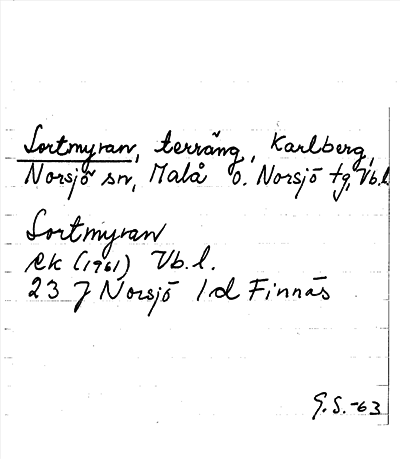 Sortmyran, terräng, Karlberg,
Norsjö sn, Malå o. Norsjö tg, Vb.l.
Sortmyran
ek (1961) Vb.l.
23 J Norsjö 1d Finnäs
G.S.-63